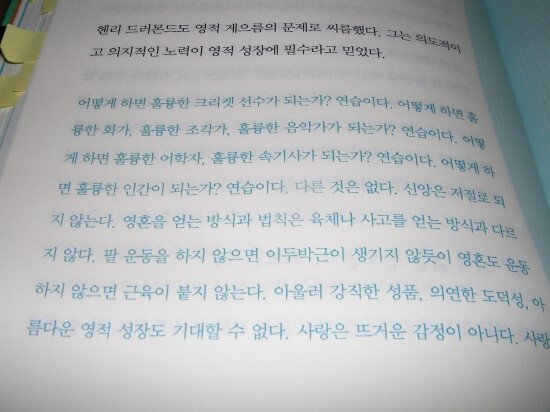 헨리 드러몬드도 영적 게으름의 문제로 씨름했다. 그는 의도적이
고 의지적인 노력이 영적 성장에 필수라고 믿었다.
어떻게 하면 훌륭한 크리켓 선수가 되는가? 연습이다. 어떻게 하면 훌
륭한 화가, 훌륭한 조각가, 훌륭한 음악가가 되는가? 연습이다. 어떻
게 하면 훌륭한 어학자, 훌륭한 속기사가 되는가? 연습이다. 어떻게 하
면 훌륭한 인간이 되는가? 연습이다. 다른 것은 없다. 신앙은 저절로 되
지 않는다. 영혼을 얻는 방식과 법칙은 육체나 사고를 얻는 방식과 다르
지 않다. 팔 운동을 하지 않으면 이두박근이 생기지 않듯이 영혼도 운동
하지 않으면 근육이 붙지 않는다. 아울러 강직한 성품, 의연한 도덕성, 아
름다운 영적 성장도 기대할 수 없다. 사랑은 뜨거운 감정이 아니다. 사랑